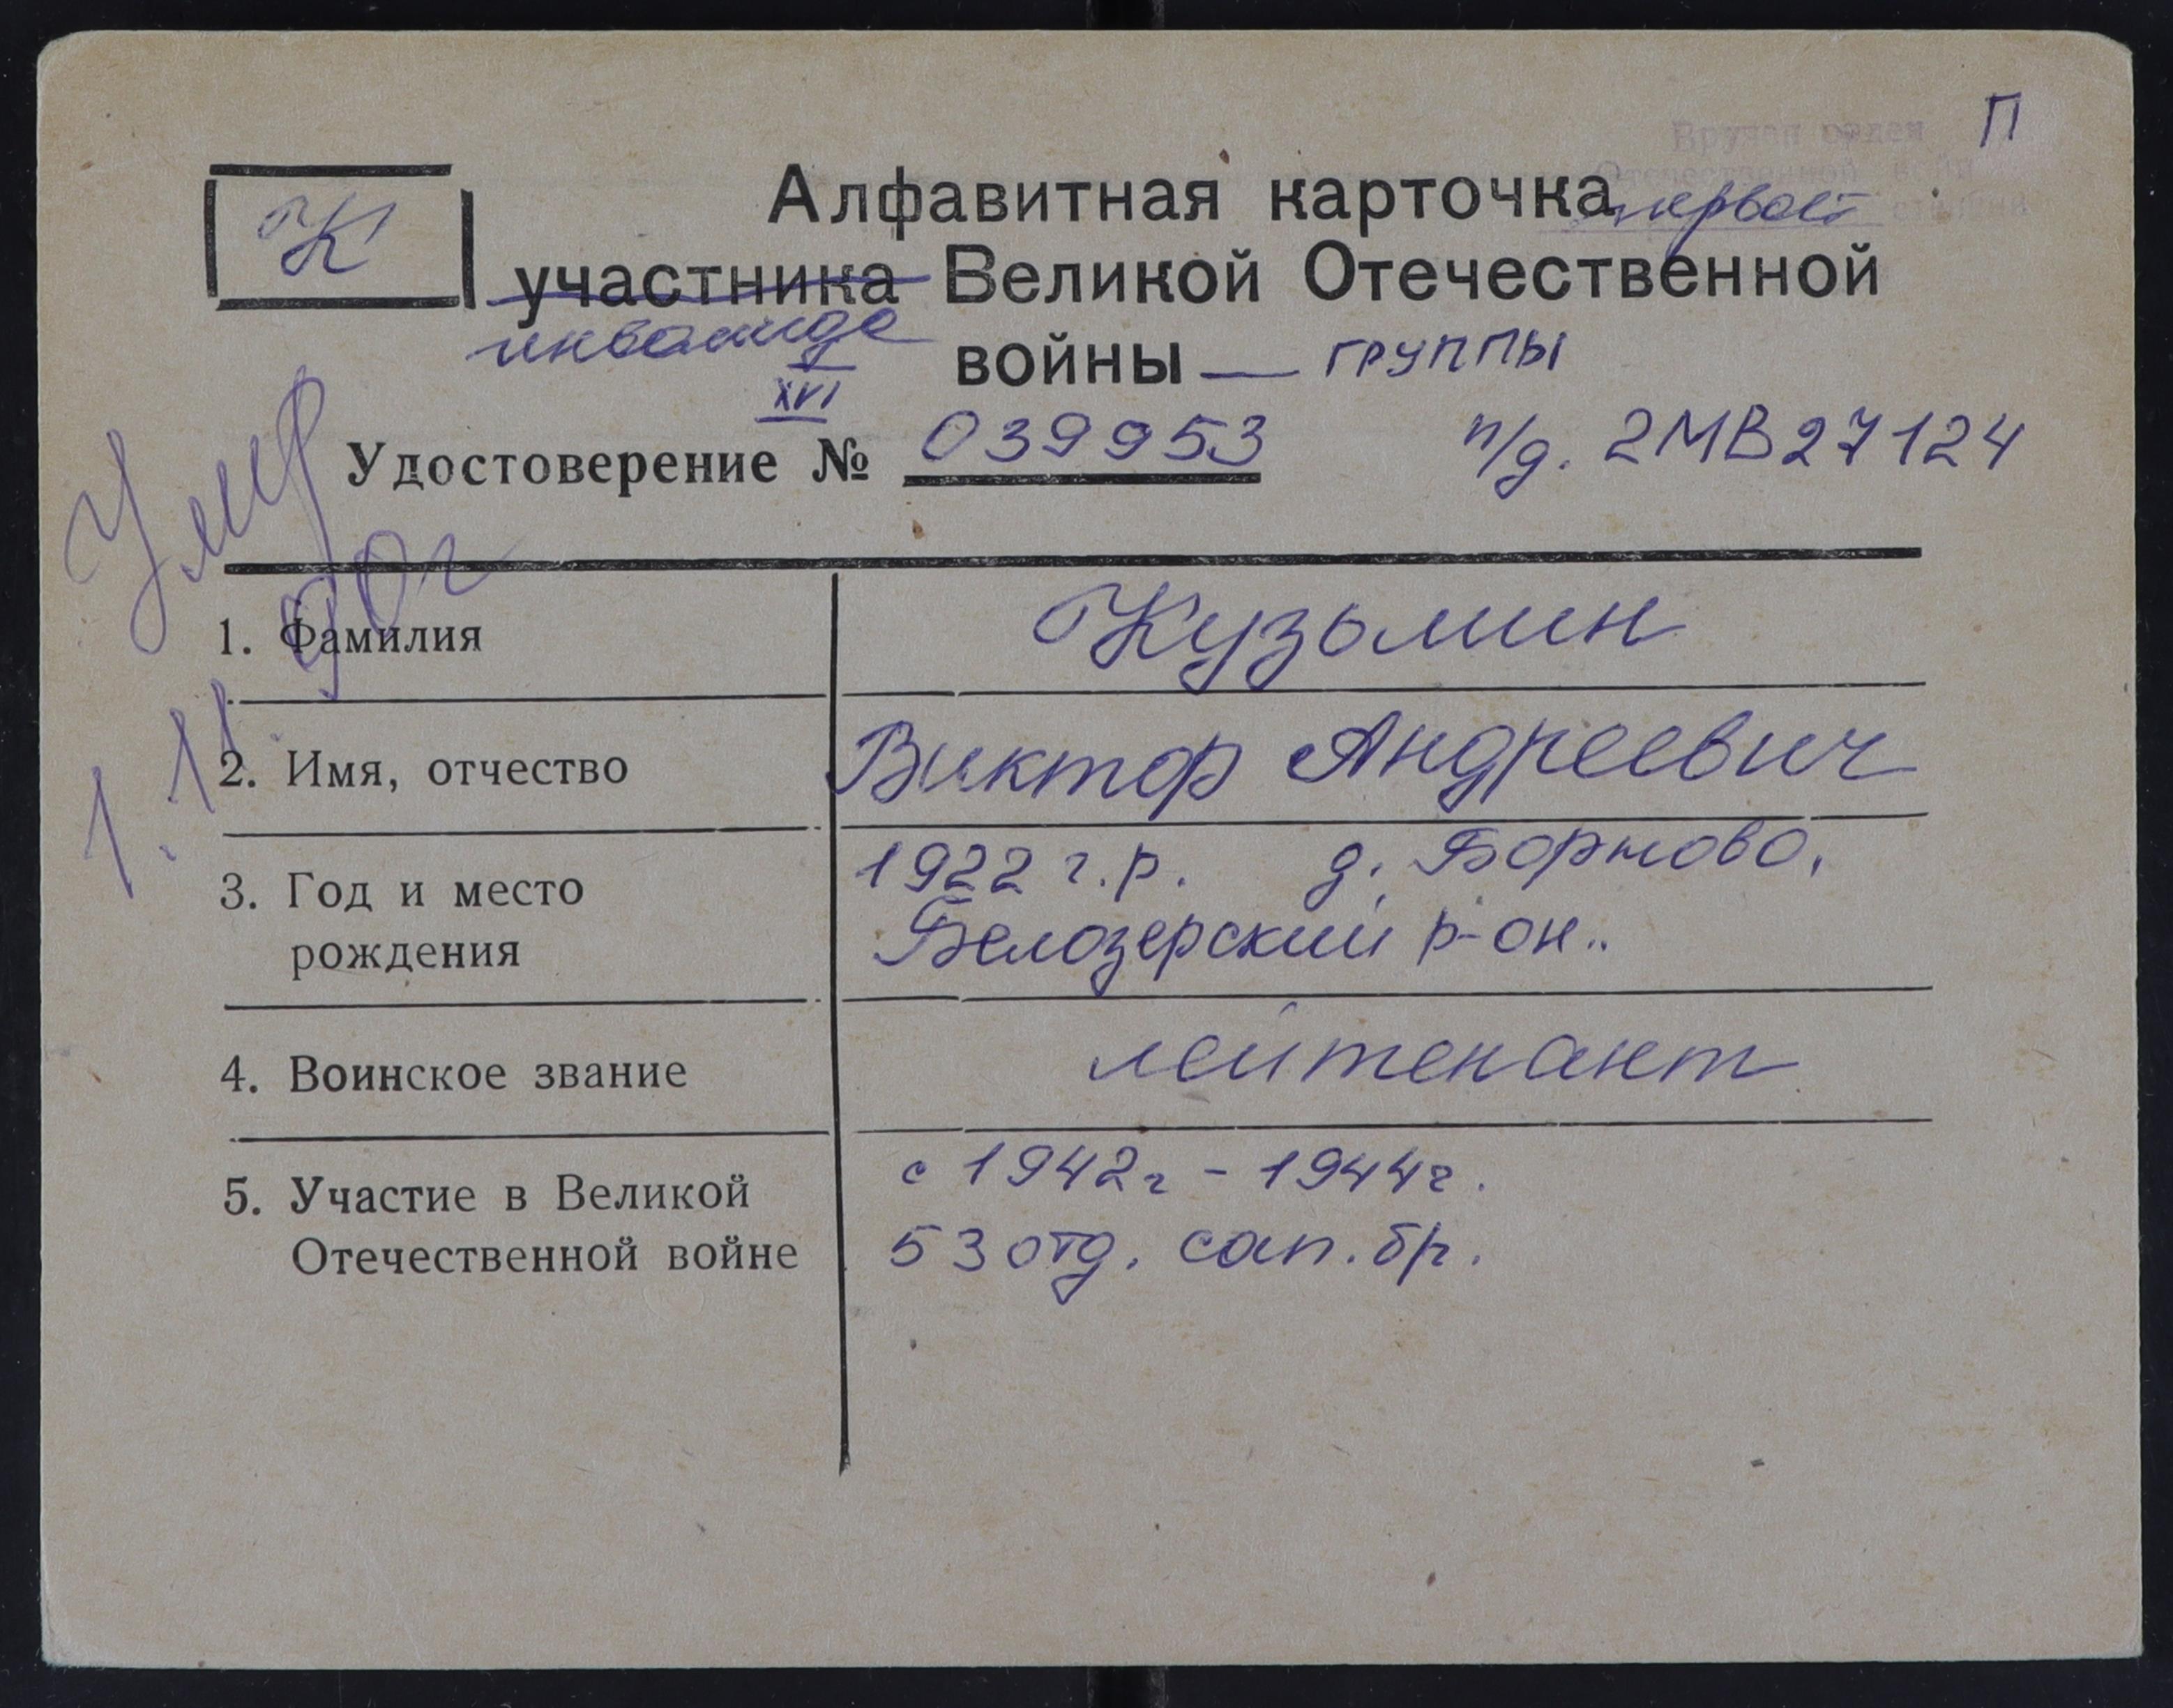 П
Вручен орден
Отечественной войны
первой степени
К
Алфавитная карточка
участника Великой Отечественной
инвалида
войны — группы
XVI
Удостоверение № 039953 п/д. 2МВ27124
Умер
1.11.90г
1. Фамилия Кузьмин
2. Имя, отчество Виктор Андреевич
3. Год и место 1922 г.р. д.
рождения Белозерский р-он..
4. Воинское звание лейтенант
5. Участие в Великой с 1942г - 1944г.
Отечественной войне 53 отд. сап. бр.